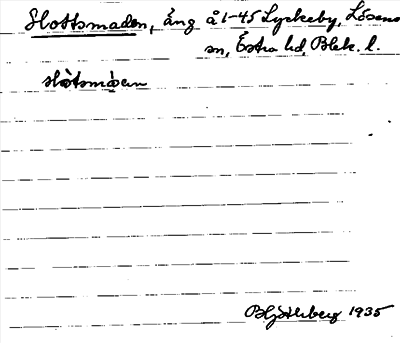 Slottsmaden, äng å 1-45 Lyckeby, Lösens
sn, Östra hd, Blek. l.
slòtsmàen
1935